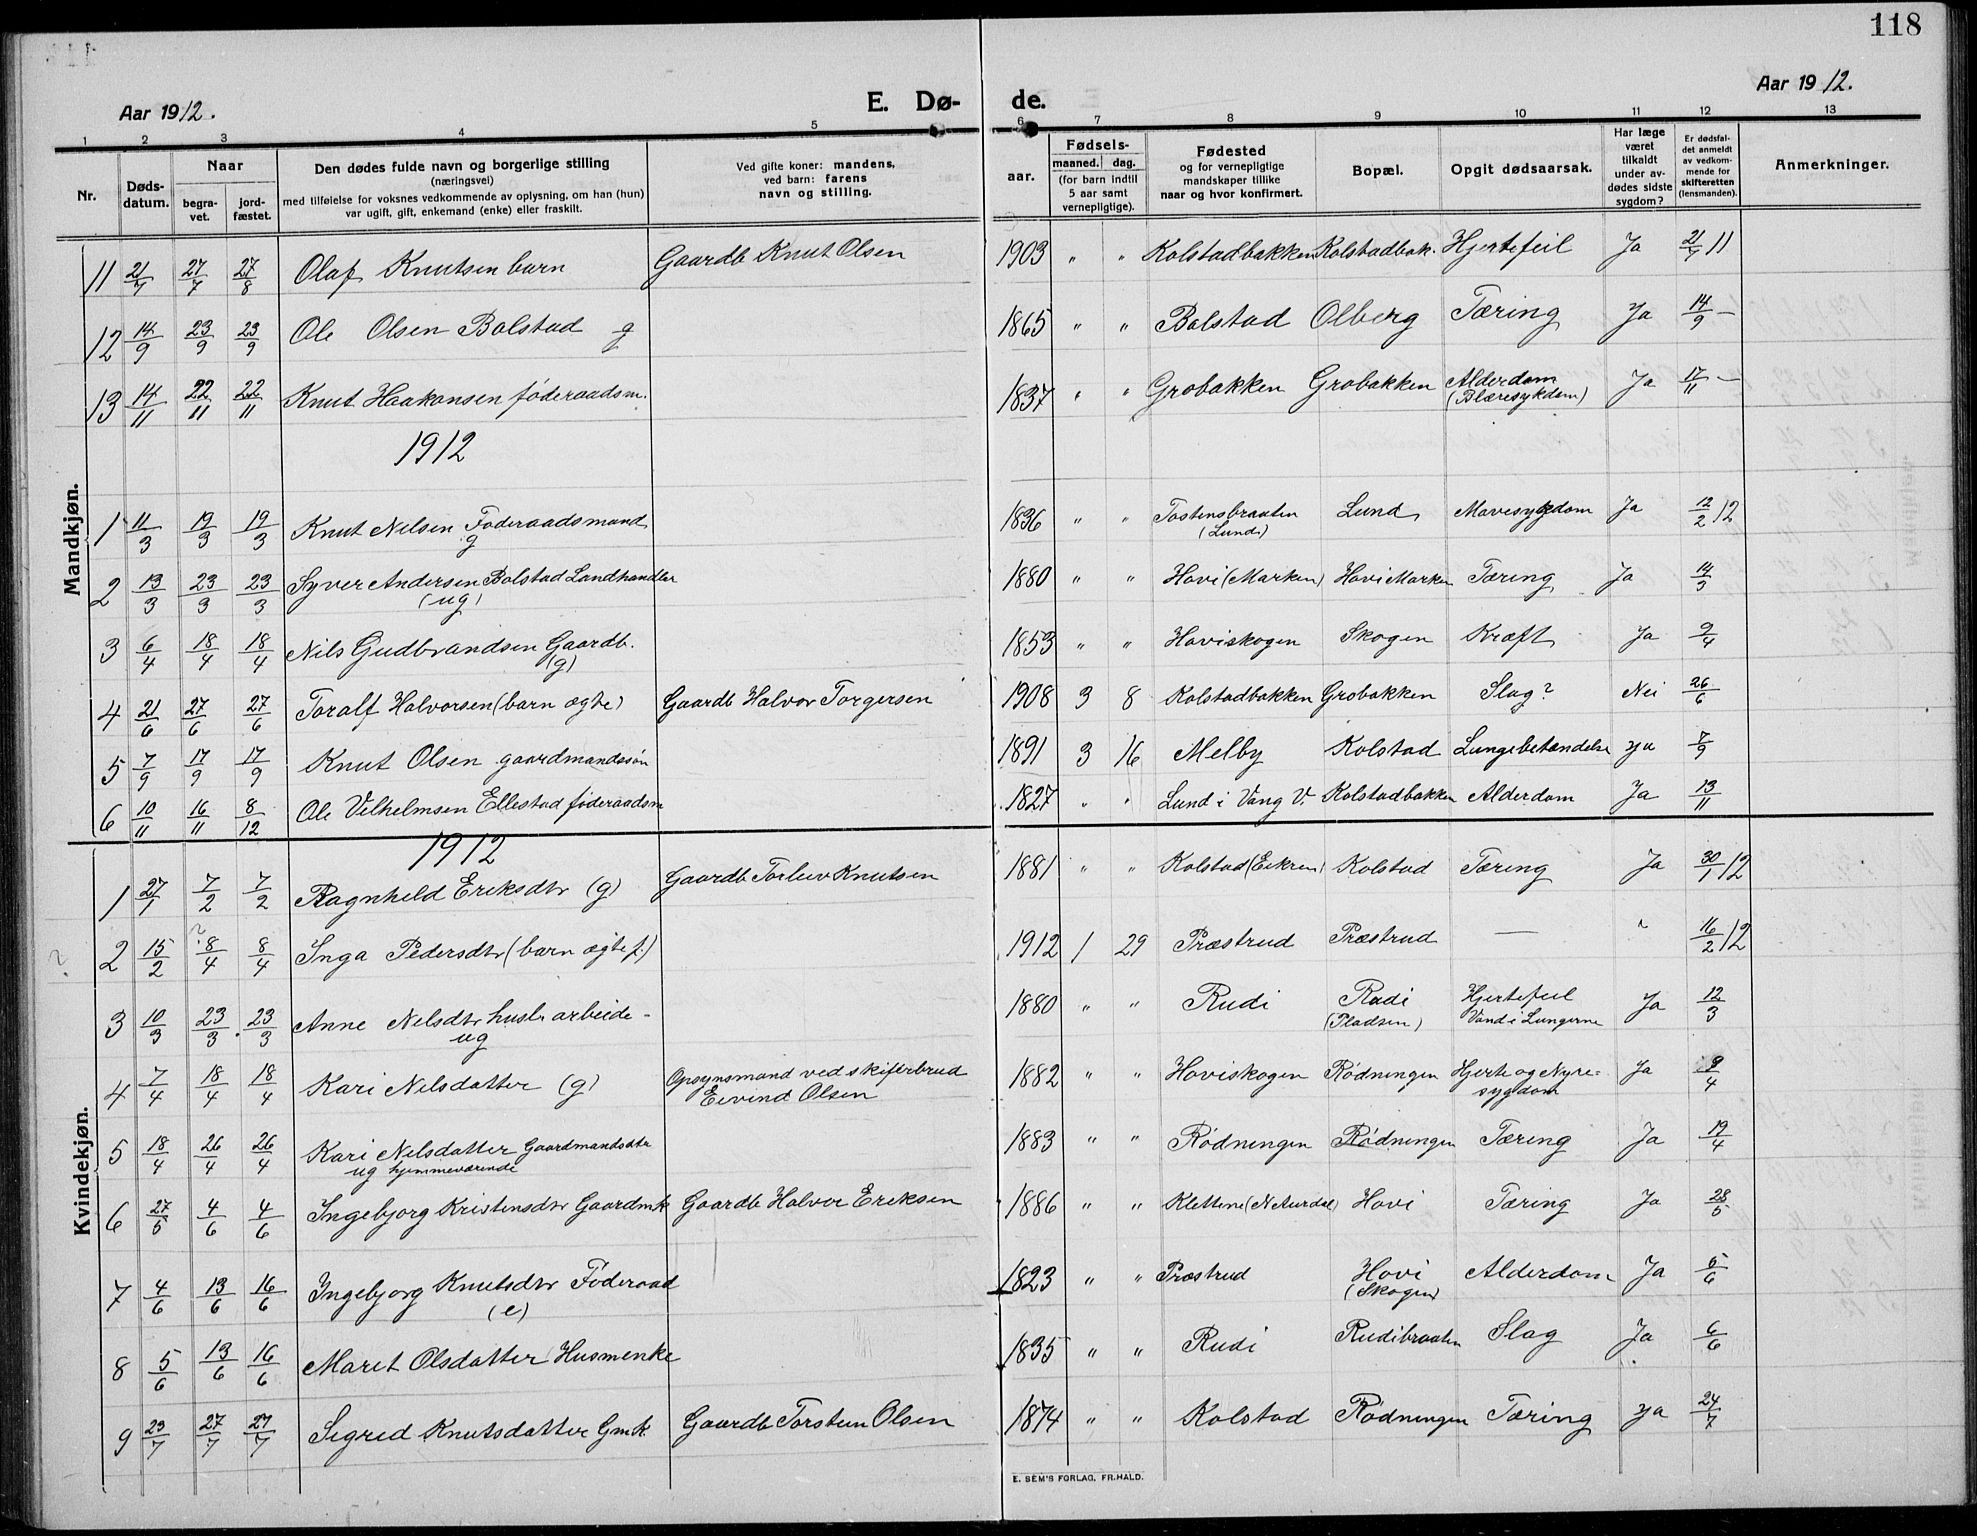 118
Aar 1912. E. Dø- de. Aar 1912.
1 2 3 4 5 6 7 8 9 10 11 12 13
Nr. Døds-datum. Naar begra-vet. jord-fæstet. Den dødes fulde navn og borgerlige stilling (næringsvei) med tilføielse for voksnes vedkommende av oplysning, om han (hun) var ugift, gift, enkemand (enke) eller fraskilt. Ved gifte koner: mandens, ved barn: farens navn og stilling. Fødsels- aar. maaned. dag. (for barn indtil 5 aar samt vernepligtige). Fødested og for vernepligtige mandskaper tillike naar og hvor konfirmert. Bopæl. Opgit dødsaarsak. Har læge været tilkaldt under av-dødes sidste sygdom? Er dødsfal-det anmeldt av vedkom-mende for skifteretten (lensmanden). Anmerkninger.
Mandkjøn.
11 21/7 27/7 27/8 Olaf Knutsen barn Gaardb Knut Olsen 1903 " " Kolstadbakken Kolstadbak. Hjertefeil Ja 21/7 11
12 14/9 23/9 23/9 Ole Olsen Bolstad g 1865 " " Bolstad Olberg Tæring Ja 14/9 —
13 14/11 22/11 22/11 Knut Haakonsen føderaadsm. 1837 " " Grobakken Grobakken Alderdom (Blæresykdom) Ja 17/11 —
1912
1 11/3 19/3 19/3 Knut Nilsen Føderaadsmand g 1836 " " Tostensbraaten (Lund) Lund Mavesygdom Ja 12/2 12
2 13/3 23/3 23/3 Syver Andersen Bolstad Landhandler (ug) 1880 " " Hovi (Marken) Hovi Marken Tæring Ja 14/3
3 6/4 18/4 18/4 Nils Gudbrandsen Gaardb. (g) 1853 " " Hoviskogen Skogen Kræft Ja 9/4
4 21/6 27/6 27/6 Toralf Halvorsen (barn ægte) Gaardb Halvor Torgersen 1908 3 8 Kolstadbakken Grobakken Slag? Nei 26/6
5 7/9 17/9 17/9 Knut Olsen gaardmandssøn 1891 3 16 Melby Kolstad Lungebetændelse ja 7/9
6 10/11 16/11 8/12 Ole Vilhelmsen Ellestad føderaadsm 1827 " " Lund i Vang V. Kolstadbakken Alderdom Ja 13/11
Kvindekjøn.
1912
1 27/1 7/2 7/2 Ragnhild Eriksdtr (g) Gaardb Torleiv Knutsen 1881 " " Kolstad (Eikren) Kolstad Tæring Ja 30/1 12
? 2 15/2 ? 8/4 8/4 Inga Pedersdtr (barn ægte f.) 1912 1 29 Præstrud Præstrud — " 16/2 12
3 10/3 23/3 23/3 Anne Nilsdtr husl. arbeide - ug 1880 " " Rudi Rudi (Pladsen) Hjertefeil Vand i Lungerne Ja 12/3
4 7/4 18/4 18/4 Kari Nilsdatter (g) Opsynsmand ved skiferbrud Eivind Olsen 1882 " " Hoviskogen Rødningen Hjerte og Nyre= sygdom Ja 9/4
5 18/4 26/4 26/4 Kari Nilsdatter Gaardmandsdtr ug hjemmeværende 1883 " " Rødningen Rødningen Tæring Ja 19/4
6 27/5 4/6 4/6 Ingebjorg Kristensdtr Gaardmk Gaardb Halvor Eriksen 1886 " " Klettene (N Aurdal) Hovi Tæring Ja 28/5
7 4/6 13/6 16/6 Ingebjorg Knutsdtr Føderaad (e) 1823 " " Præstrud Hovi (Skogen) Alderdom Ja 5/6
8 5/6 13/6 16/6 Marit Olsdatter Husmenke 1835 " " Rudi Rudibraaten Slag Ja 6/6
9 23/7 27/7 27/7 Sigrid Knutsdatter Gmk. Gaardb Torstein Olsen 1874 " " Kolstad Rødningen Tæring ja 24/7
E. SEM'S FORLAG, FR.HALD.